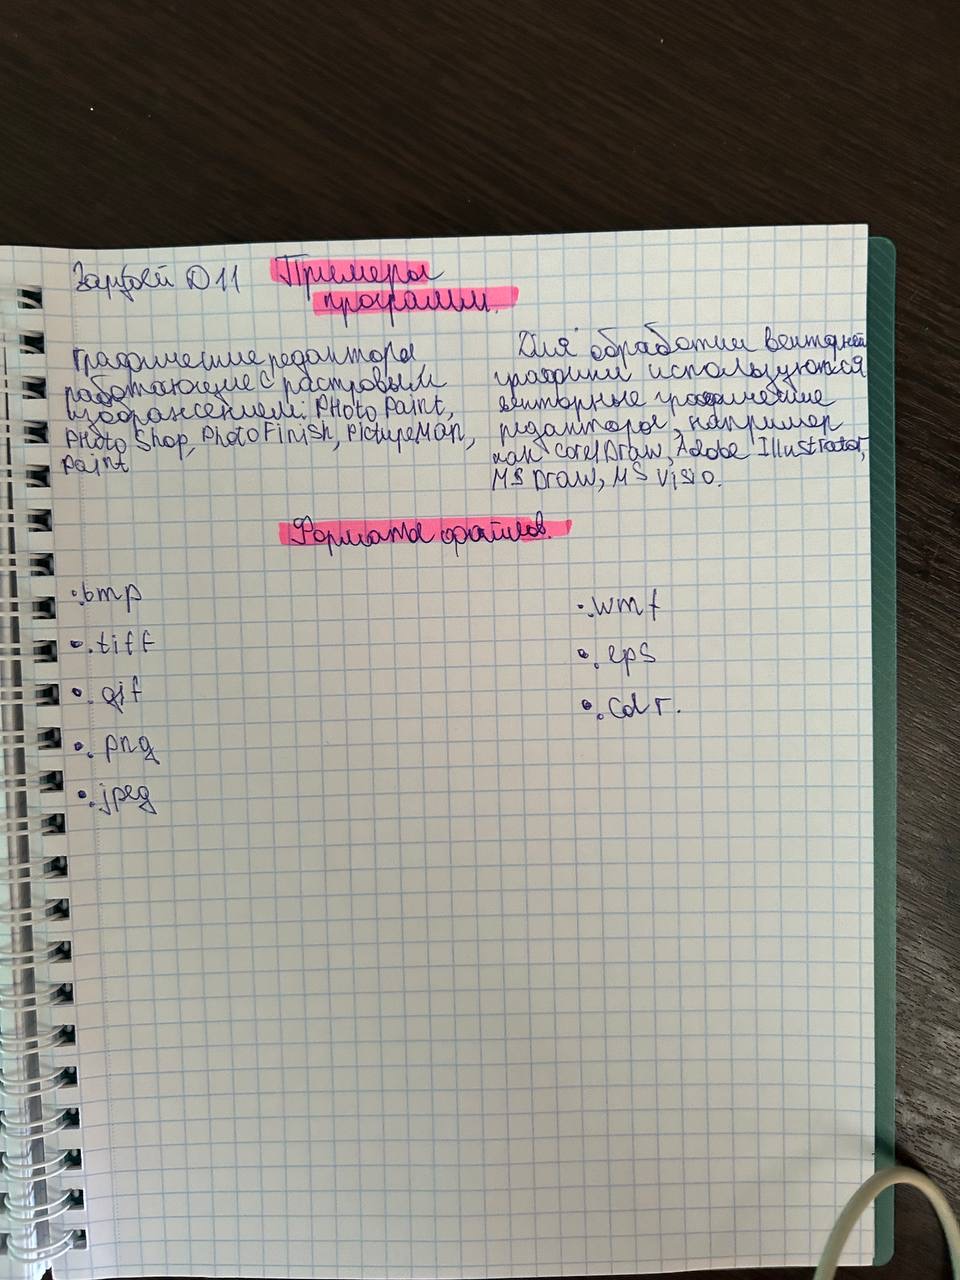 Зарубей D11
Примеры
программ.
Графические редакторы
работающие с растровым
изображением: PHoto Paint,
PHoto Shop, PhotoFinish, PictureMan,
Paint
Для обработки векторной
графики используются
векторные графические
редакторы, например
как CorelDraw, Adobe Illustrator,
MS Draw, MS Visio.
Форматы файлов.
• .bmp
• .tiff
• .gif
• .png
• .jpeg
• .wmf
• .eps
• .cdr.